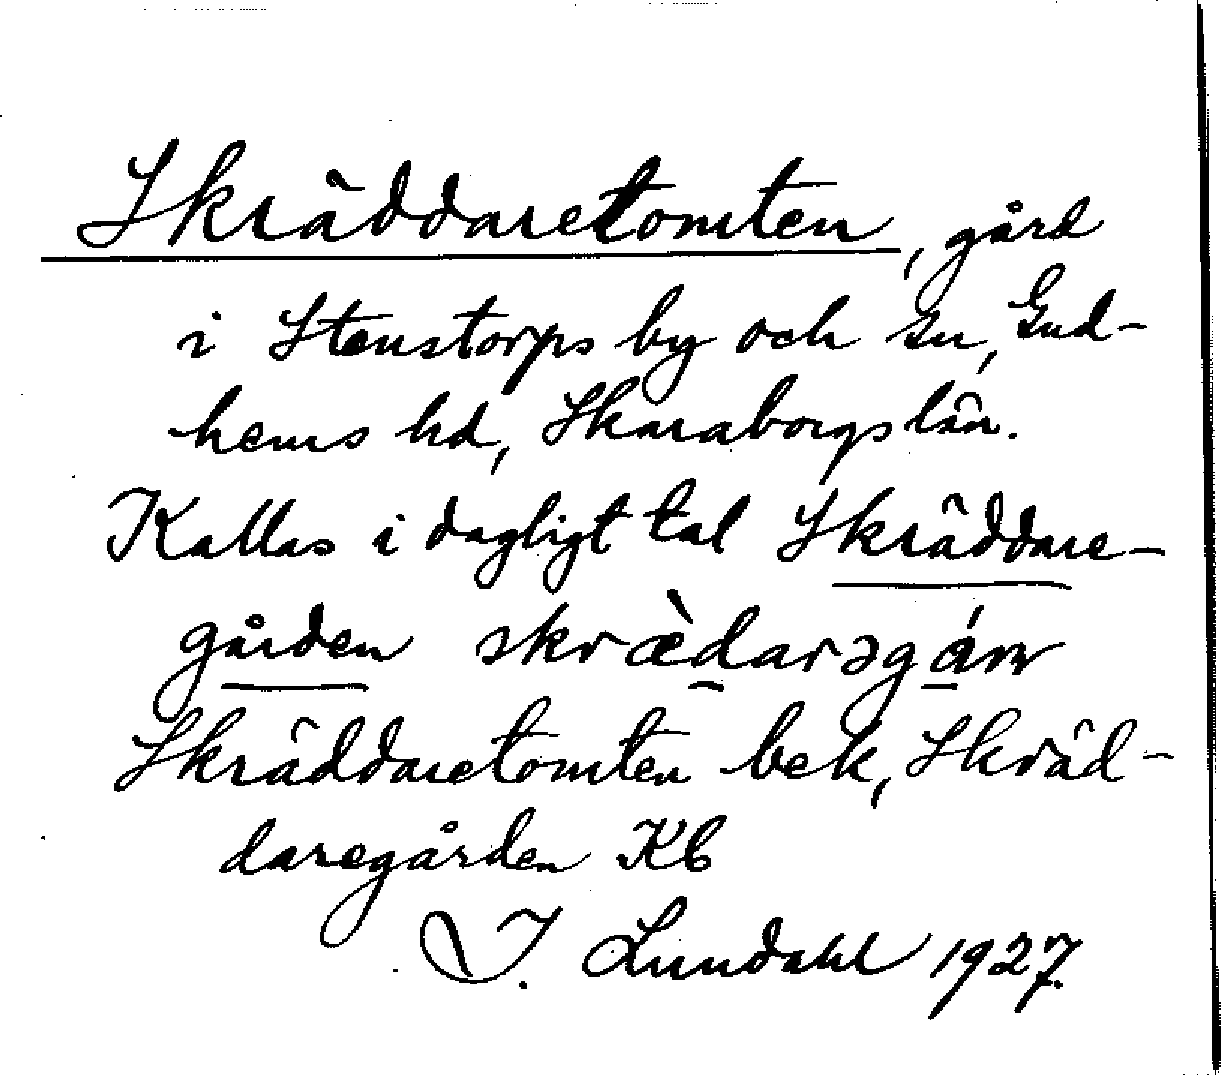 Skräddaretomten, gård
i Stenstorps by och sn, Gud-
hems hd, Skaraborgs län.
Kallas i dagligt tal Skräddare-
gården skræ̀darəgán
Skräddaretomten bek, Skräd-
daregården Kb
I. Lundahl 1927.